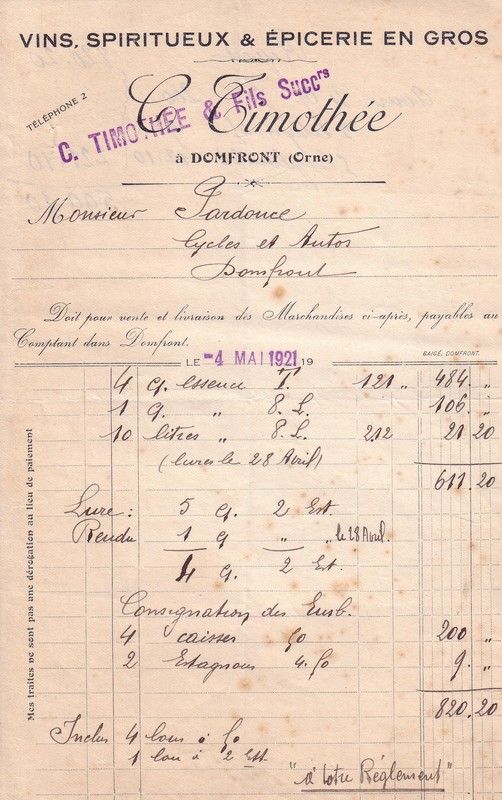 VINS, SPIRITUEUX & ÉPICERIE EN GROS
TÉLÉPHONE 2
C. Timothée
C. TIMOTHÉE & Fils Succrs
à DOMFRONT (Orne)
Monsieur Pardonce
Cycles et Autos
Domfront
Doit pour vente et livraison des Marchandises ci-après, payables au
Comptant dans Domfront.
BAIGÉ, DOMFRONT.
LE -4 MAI 1921 19
4 q. essence T. 121 " 484 "
1 q. " P. L. 106 "
10 litres " P. L. 212 21 20
(livrés le 28 Avril)
611. 20
Livré : 5 q. 2 Est.
Rendu 1 q " " le 28 Avril.
4 q. 2 Est.
Consignation des Emb.
4 caisses 50 200 "
2 Estagnons 4.50 9. "
820. 20
Inclus 4 bons à 50
1 bon à 2 Est
"à votre Règlement"
Mes traites ne sont pas une dérogation au lieu de paiement